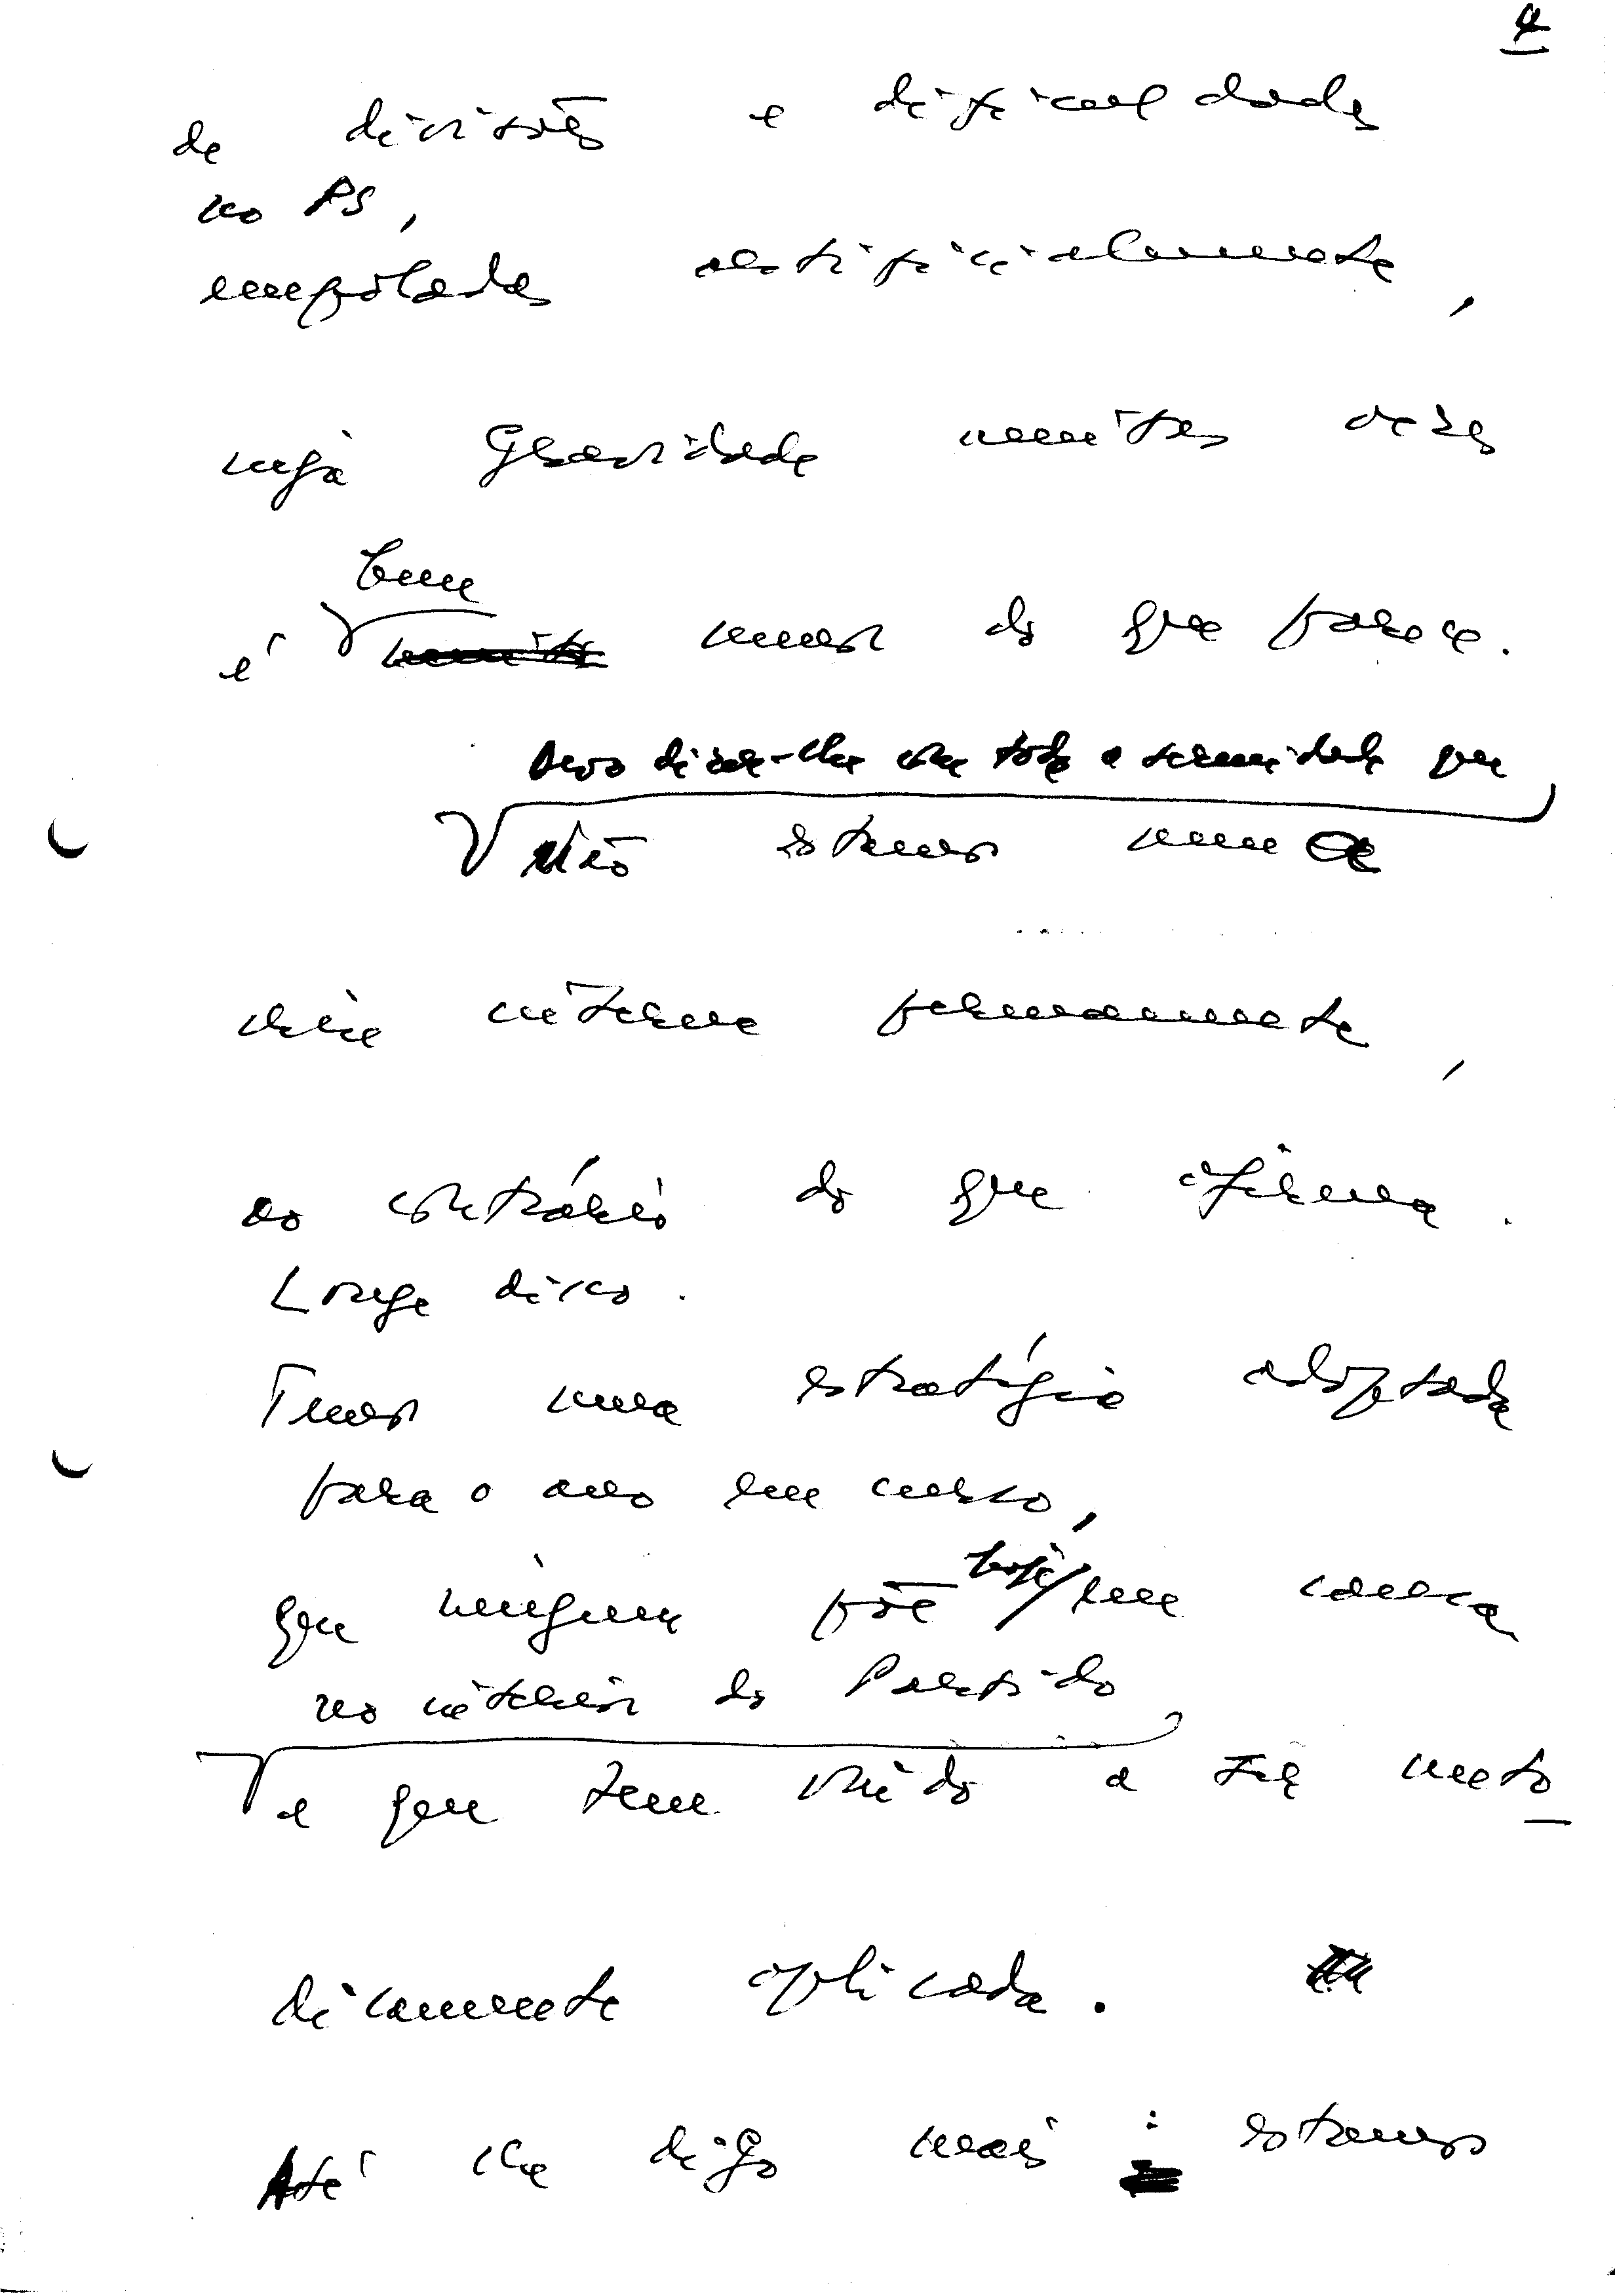 4
de divisões e dificuldades
no PS,
empoladas artificialmente,
cuja gravidade muitas vezes
bem
é muito menor do que parece.
Devo dizer-lhe com toda a serenidade que
Não estamos numa
crise interna permanente,
ao contrário do que afirma.
Longe disso.
Temos uma estratégia adoptada
para o ano em curso,
que ninguém põe hoje em causa
no interior do Partido
e que tem vindo a ser metó
dicamente aplicada.
Até lhe digo mais: estamos